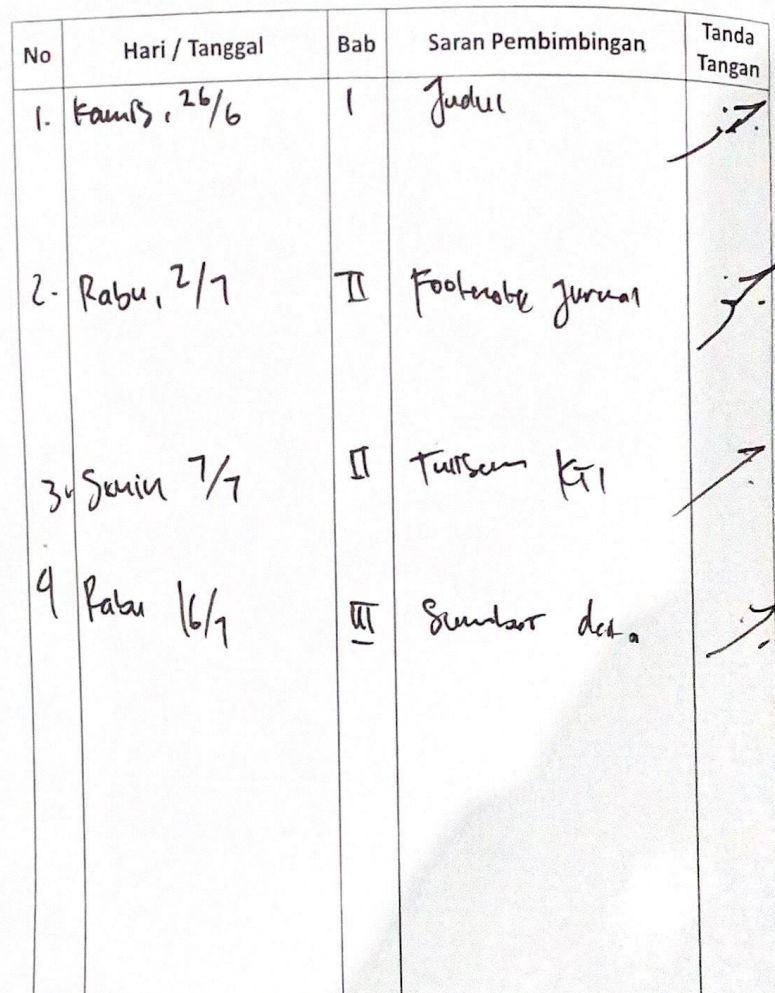 No Hari / Tanggal Bab Saran Pembimbingan Tanda Tangan
1. Kamis, 26/6 I Judul
2. Rabu, 2/7 II Footnote Jurnal
3. Senin 7/7 II Tulisan KTI
4 Rabu 16/7 III Sumber data